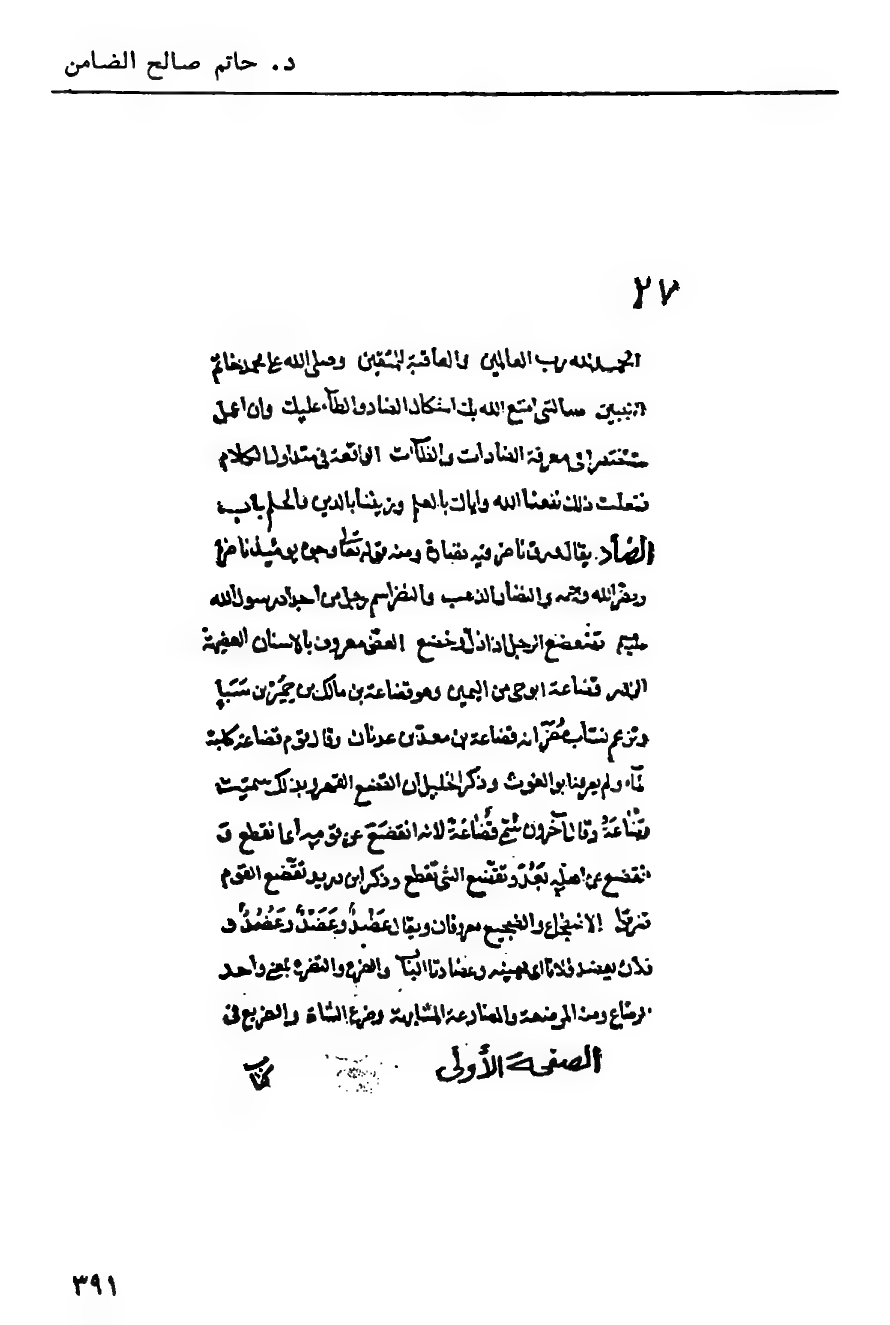 د. حاتم صالح الضامن
٢٧
الحمد لله رب العالمين والعاقبة للمتقين وصلى الله على محمد خاتم
النبيين سالتني امتع الله بك اشكال الضاد والظآء عليك وان اعمل
مختصرا في معرفة الضادات والظاآت الواقعة في متداول الكلام
ففعلت ذلك نفعنا الله واياك بالعلم وزيننا بالدين والحلم باب
الضاد يقال عرق نابض فيه ومنه قوله تعالى
ونضر الله وجهه والنضار الذهب والنضر اسم رجل من اجداد رسول الله
تضعضع الرجل اذا ذل وخضع العض معروف بالاسنان
قضاعة ابو حي من اليمن وهو قضاعة بن مالك بن حمير بن سبا
وتزعم نساب مضر انه قضاعة بن معد بن عدنان وقال قوم قضاعة كلبة
ماء ولم يعرفه ابو الغوث وذكر الخليل ان القضع القهر وبذلك سميت
قضاعة وقال آخرون سمي قضاعة لانه انقضع عن قومه اي انقطع
انقضع عن اهله بعد وتقضع الشي تقطع وذكر ابن دريد تقضع القوم
تفرقوا الاضطجاع والضجيع معروفان ويقال عضد وعضد وعضد
فلان يعضد فلانا اي يعينه وعضادتا الباب والضرع والتضرع بمعنى واحد
الرضاع ومنه المرضعة والمضارعة المشابهة وضرع الشاة والضريع في
الصفحة الأولى
كتاب
٣٩١